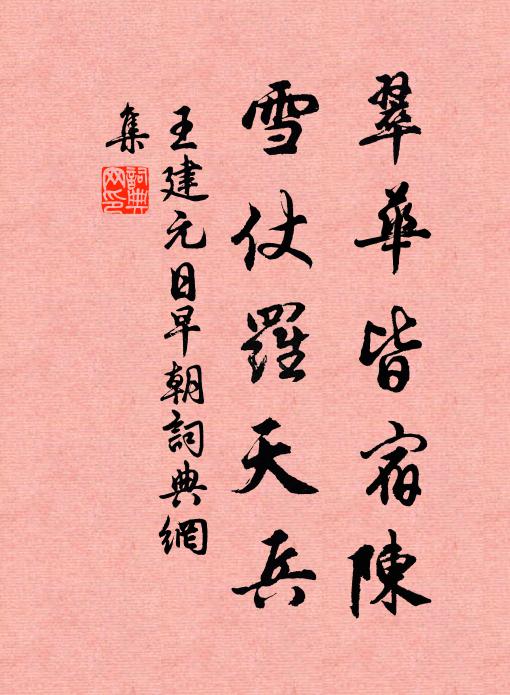 翠華皆宿陳
雪仗羅天兵
王建元日早朝詞典網
集
詞典网印